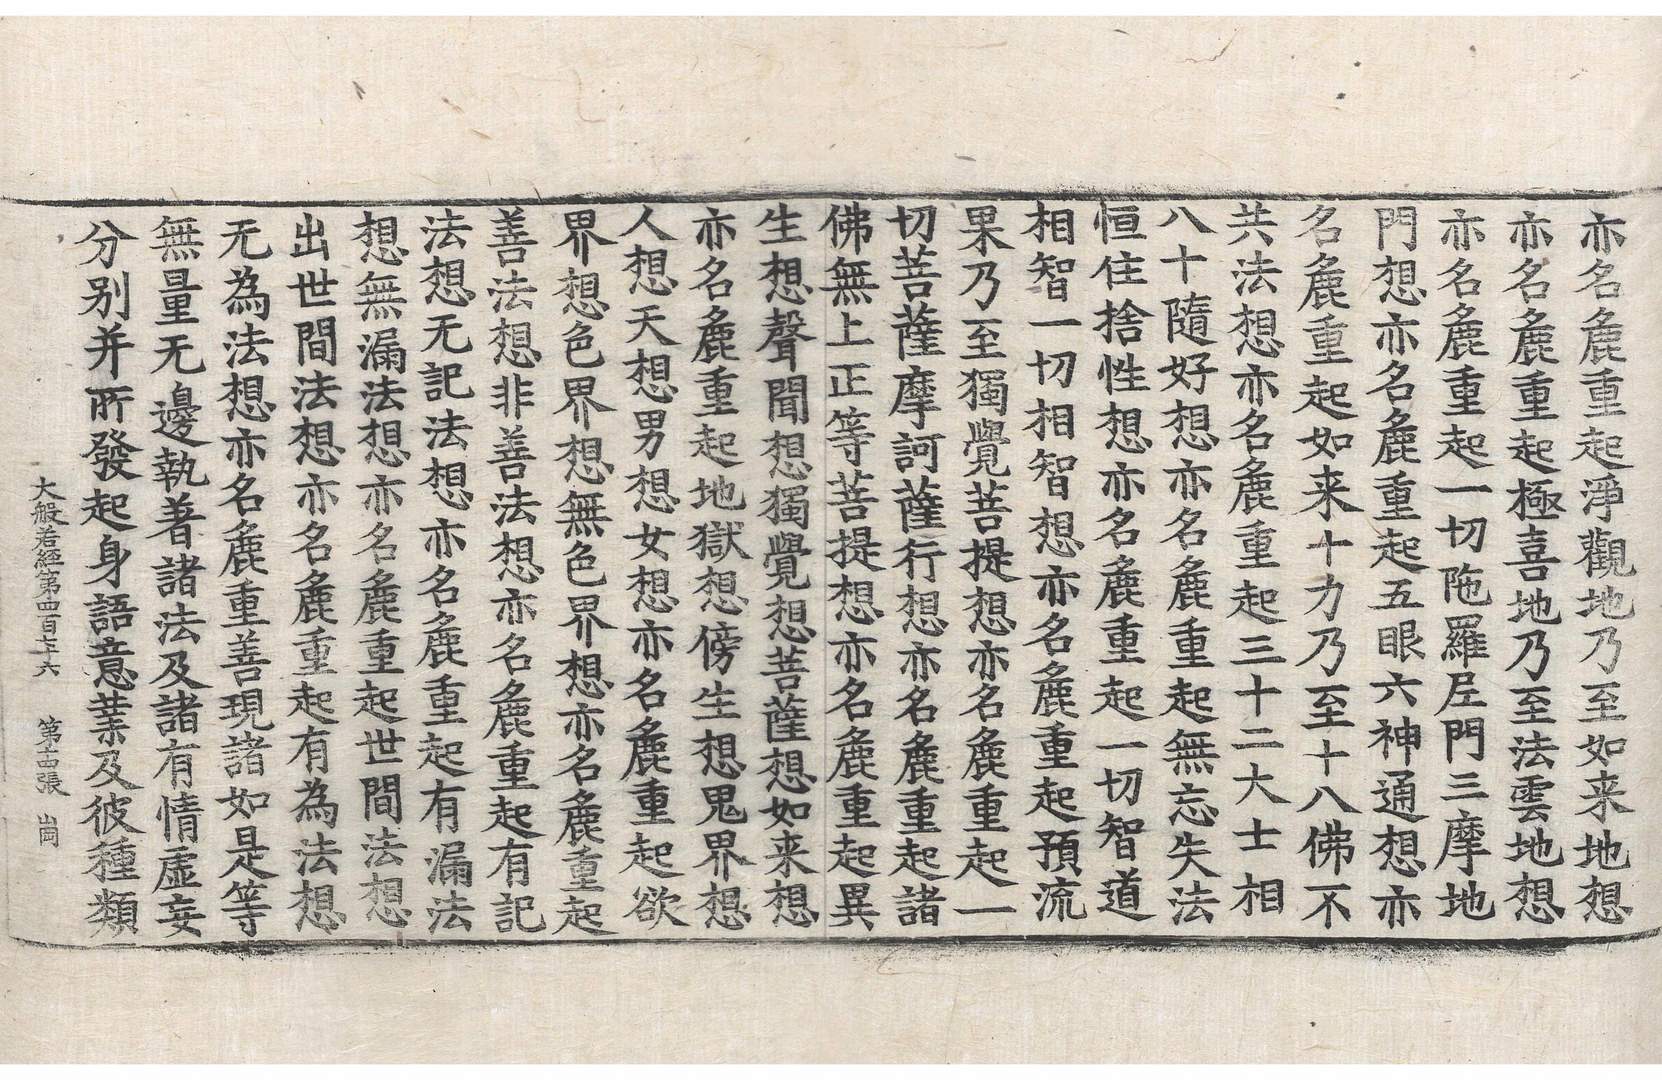 亦名麁重起淨觀地乃至如来地想
亦名麁重起極喜地乃至法雲地想
亦名麁重起一切陁羅尼門三摩地
門想亦名麁重起五眼六神通想亦
名麁重起如来十力乃至十八佛不
共法想亦名麁重起三十二大士相
八十隨好想亦名麁重起無忘失法
恒住捨性想亦名麁重起一切智道
相智一切相智想亦名麁重起預流
果乃至獨覺菩提想亦名麁重起一
切菩薩摩訶薩行想亦名麁重起諸
佛無上正等菩提想亦名麁重起異
生想聲聞想獨覺想菩薩想如来想
亦名麁重起地獄想傍生想鬼界想
人想天想男想女想亦名麁重起欲
界想色界想無色界想亦名麁重起
善法想非善法想亦名麁重起有記
法想无記法想亦名麁重起有漏法
想無漏法想亦名麁重起世間法想
出世間法想亦名麁重起有為法想
无為法想亦名麁重善現諸如是等
無量无邊執著諸法及諸有情虛妄
分别并所發起身語意業及彼種類
大般若經第四百七十六 第十四張 崗